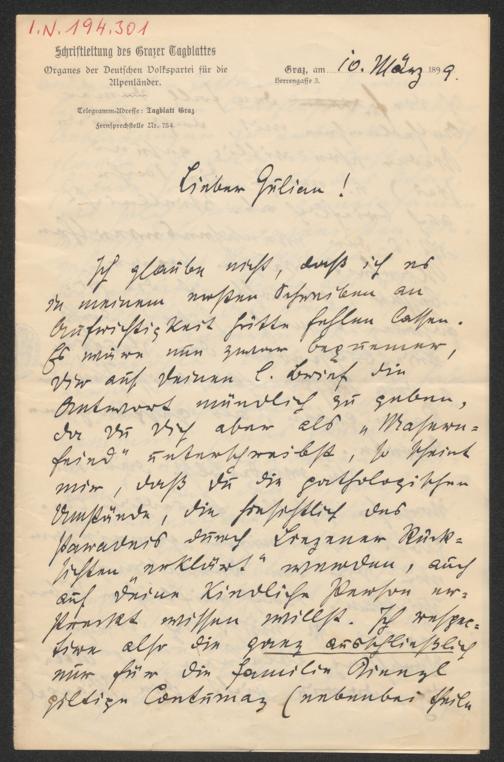 I.N. 194.301
Schriftleitung des Grazer Tagblattes
Organes der Deutschen Volkspartei für die
Alpenländer.
Telegramm-Adresse: Tagblatt Graz
Fernsprechstelle Nr. 784.
Graz, am 10. März 1899.
Herrengasse 3.
Lieber Gülian!
Ich glaube nicht, daß ich es
in meinem ersten Schreiben an
Aufrichtigkeit hätte fehlen lassen.
Es wäre nun zwar bequemer,
Dir auf Deinen l. Brief die
Antwort mündlich zu geben,
da Du Dich aber als „Masern-
feind" unterschreibst, so scheint
mir, daß Du die pathologischen
Umstände, die hinsichtlich des
Paradeis durch Liezener Rück-
sichten „erklärt" werden, auch
auf Deine kindliche Person er-
streckt wissen willst. Ich respec-
tire also die ganz ausschließlich
nur für die Familie Kienzl
giltige Contumaz (nebenbei theile